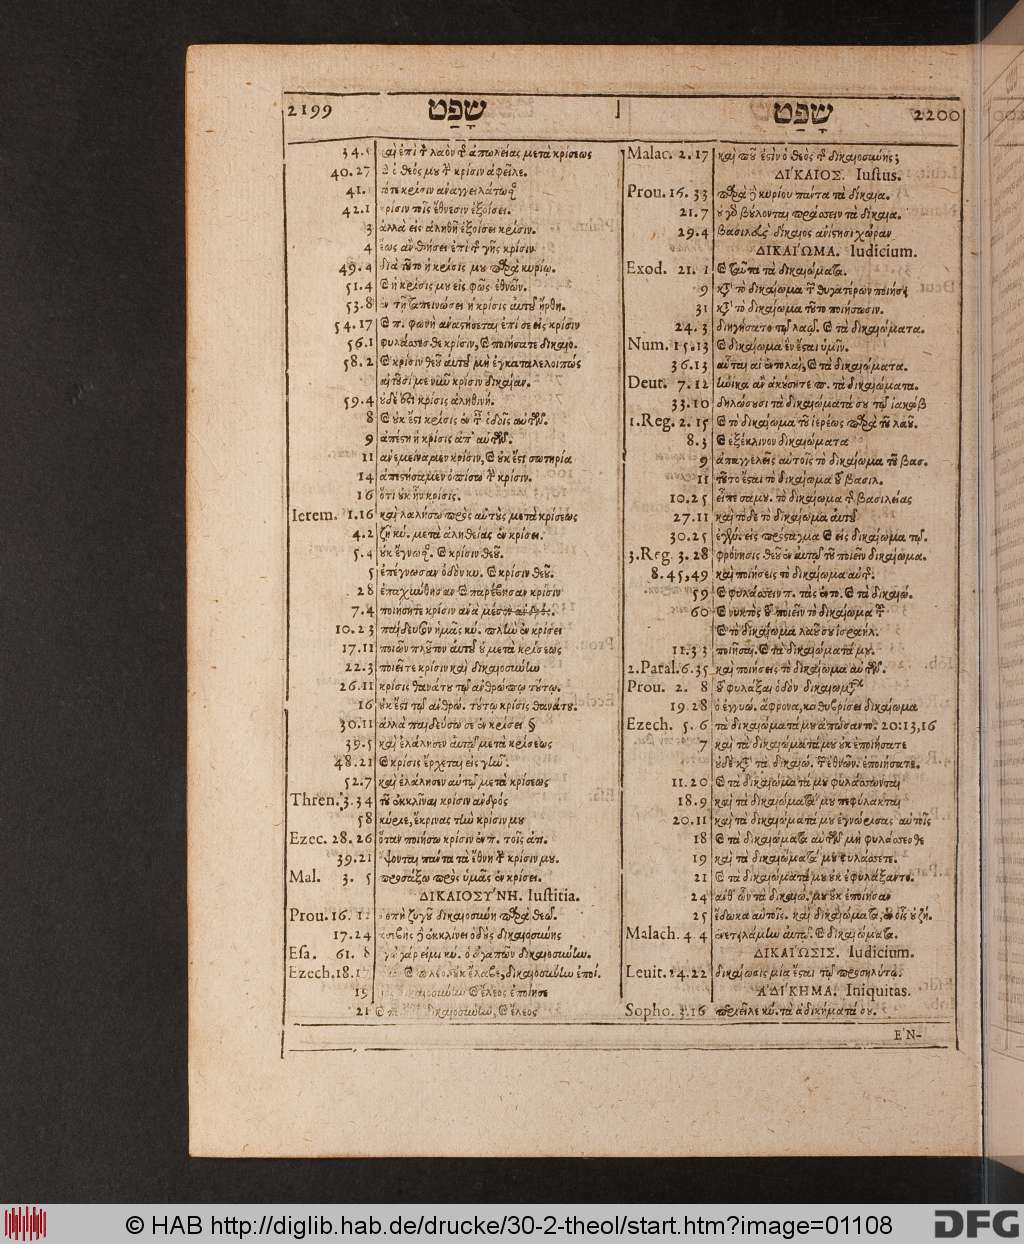 2199 שָׁפַט
34.5 καὶ ἐπὶ τ λαὸν τ ἀπωλείας μετὰ κρίσεως
40.27 ὁ θεός μου τ κρίσιν ἀφεῖλε.
41.1 τότε κρίσιν ἀναγγειλάτωσ
42.1 κρίσιν τοῖς ἔθνεσιν ἐξοίσει.
3 ἀλλὰ εἰς ἀληθῆ ἐξοίσει κρίσιν.
4 ἕως ἂν θήσει ἐπὶ τ γῆς κρίσιν
49.4 διὰ τοῦτο ἡ κρίσις μου παρὰ κυρίῳ.
51.4 καὶ ἡ κρίσις μου εἰς φῶς ἐθνῶν.
53.8 ἐν τῇ ταπεινώσει ἡ κρίσις αὐτοῦ ἤρθη.
54.17 καὶ π. φωνὴ ἀναστήσεται ἐπὶ σὲ εἰς κρίσιν
56.1 φυλάσσεσθε κρίσιν, καὶ ποιήσατε δικαιο.
58.2 καὶ κρίσιν θεοῦ αὐτοῦ μὴ ἐγκαταλελοιπώς
αἰτοῦσί με νῦν κρίσιν δικαίαν.
59.4 οὐδέ ἐστι κρίσις ἀληθινή.
8 καὶ οὐκ ἔστι κρίσις ἐν τ ὁδοῖς αὐτῶν.
9 ἀπέστη ἡ κρίσις ἀπ' αὐτῶν.
11 ἀνεμείναμεν κρίσιν, καὶ οὐκ ἔστι σωτηρία
14 ἀπεστήσαμεν ὀπίσω τ κρίσιν.
16 ὅτι οὐκ ἦν κρίσις.
Ierem. 1.16 καὶ λαλήσω πρὸς αὐτοὺς μετὰ κρίσεως
4.2 ζῇ κύ. μετὰ ἀληθείας ἐν κρίσει.
5.4 οὐκ ἔγνωσ. καὶ κρίσιν θεοῦ.
5 ἐπέγνωσαν ὁδὸν κυ. καὶ κρίσιν θεοῦ.
28 ἐπαχύνθησαν καὶ παρέβησαν κρίσιν
7.4 ποιήσητε κρίσιν ἀνὰ μέσον ἀνδρός.
10.23 παίδευσον ἡμᾶς κύ. πλὴν ἐν κρίσει
17.11 ποιῶν πλοῦτον αὐτοῦ οὐ μετὰ κρίσεως
22.3 ποιεῖτε κρίσιν καὶ δικαιοσύνην
26.11 κρίσις θανάτου τῷ ἀνθρώπῳ τούτῳ.
16 οὐκ ἔστι τῷ ἀνθρώ. τούτῳ κρίσις θανάτου.
30.11 ἀλλὰ παιδεύσω σε ἐν κρίσει §
39.5 καὶ ἐλάλησεν αὐτῷ μετὰ κρίσεως
48.21 καὶ κρίσις ἔρχεται εἰς γῆν.
52.7 καὶ ἐλάλησεν αὐτῷ μετὰ κρίσεως
Thren. 3.34 τοῦ ἐκκλῖναι κρίσιν ἀνδρός
58 κύριε, ἔκρινας τὴν κρίσιν μου
Ezec. 28.26 ὅταν ποιήσω κρίσιν ἐν π. τοῖς ἀπ.
39.21 ὄψονται πάντα τὰ ἔθνη τ κρίσιν μου.
Mal. 3.5 προσάξω πρὸς ὑμᾶς ἐν κρίσει.
ΔΙΚΑΙΟΣΥΝΗ. Iustitia.
Prou. 16.11 ῥοπὴ ζυγοῦ δικαιοσύνη παρὰ θεῷ.
17.24 ἀσεβὴς ἐκκλίνει ὁδοὺς δικαιοσύνης
Esa. 61.8 ἐγὼ γάρ εἰμι κύ. ὁ ἀγαπῶν δικαιοσύνην.
Ezech. 18.17 ἔλαβε, δικαιοσύνην ἐποί.
19 δικαιοσύνην καὶ ἔλεος ἐποίησε
21 δικαιοσύνην, καὶ ἔλεος
שָׁפַט 2200
Malac. 2.17 καὶ ποῦ ἐστὶν ὁ θεὸς τ δικαιοσύνης;
ΔΙ'ΚΑΙΟΣ. Iustus.
Prou. 16.33 παρὰ κυρίου πάντα τὰ δίκαια.
21.7 οὐ γὰρ βούλονται πράσσειν τὰ δίκαια.
29.4 βασιλεὺς δίκαιος ἀνίστησι χώραν
ΔΙΚΑΙ'ΩΜΑ. Iudicium.
Exod. 21.1 καὶ ταῦτα τὰ δικαιώματα.
9 κτ τὸ δικαίωμα τ θυγατέρων ποιήσ
31 κτ τὸ δικαίωμα τοῦτο ποιήσωσιν.
24.3 διηγήσατο τῷ λαῷ. καὶ τὰ δικαιώματα.
Num. 15.13 καὶ δικαίωμα ἓν ἔσται ὑμῖν.
36.13 αὗται αἱ ἐντολαί, καὶ τὰ δικαιώματα.
Deut. 7.12 ἡνίκα ἂν ἀκούσητε π. τὰ δικαιώματα.
33.10 δηλώσουσι τὰ δικαιώματά σου τῷ ἰακώβ
1.Reg. 2.15 καὶ τὸ δικαίωμα τοῦ ἱερέως παρὰ τοῦ λαοῦ.
8.3 καὶ ἐξέκλινον δικαιώματα
9 ἀπαγγελεῖς αὐτοῖς τὸ δικαίωμα τοῦ βασ.
11 τοῦτο ἔσται τὸ δικαίωμα τοῦ βασιλ.
10.25 εἶπε σαμου. τὸ δικαίωμα τ βασιλείας
27.11 καὶ τόδε τὸ δικαίωμα αὐτοῦ
30.25 ἐγένε. εἰς πρόσταγμα καὶ εἰς δικαίωμα τῷ.
3.Reg. 3.28 φρόνησις θεοῦ ἐν αὐτῷ τοῦ ποιεῖν δικαίωμα.
8.45,49 καὶ ποιήσεις τὸ δικαίωμα αὐτ.
59 καὶ φυλάσσειν π. τὰς ἐντο. καὶ τὰ δικαιώ.
60 καὶ νυκτὸς τοῦ ποιεῖν τὸ δικαίωμα τ
καὶ τὸ δικαίωμα λαοῦ σου ἰσραήλ.
11.33 ποιῆσαι. καὶ τὰ δικαιώματά μου.
2.Paral. 6.35 καὶ ποιήσεις τὸ δικαίωμα αὐτῶν.
Prou. 2.8 τοῦ φυλάξαι ὁδὸν δικαιωμάτων
19.28 ὁ ἐγγυώ. ἄφρονα, καθυβρίσει δικαίωμα
Ezech. 5.6 τὰ δικαιώματά μου ἀπώσαντο. 20:13,16
7 καὶ τὰ δικαιώματά μου οὐκ ἐποιήσατε
οὐδὲ κτ τὰ δικαιώ. τ ἐθνῶν. ἐποιήσατε.
11.20 καὶ τὰ δικαιώματά μου φυλάσσωνται
18.9 καὶ τὰ δικαιώματά μου πεφύλακται
20.11 καὶ τὰ δικαιώματά μου ἐγνώρισας αὐτοῖς
18 καὶ τὰ δικαιώματα αὐτῶν μὴ φυλάσσεσθε
19 καὶ τὰ δικαιώματά μου φυλάσσετε.
21 καὶ τὰ δικαιώματά μου οὐκ ἐφυλάξαντο.
24 ἀνθ' ὧν τὰ δικαιώ. μου οὐκ ἐποίησαν
25 ἔδωκα αὐτοῖς. καὶ δικαιώματα, ἐν οἷς οὐ ζή.
Malach. 4.4 ἐνετειλάμην αὐτῷ. καὶ δικαιώματα.
ΔΙΚΑΙ'ΩΣΙΣ. Iudicium.
Leuit. 24.22 δικαίωσις μία ἔσται τῷ προσηλύτῳ.
Α'ΔΙ'ΚΗΜΑ. Iniquitas.
Sopho. 3.16 περιεῖλε κύ. τὰ ἀδικήματά σου.
ΕΝ-
© HAB http://diglib.hab.de/drucke/30-2-theol/start.htm?image=01108
DFG